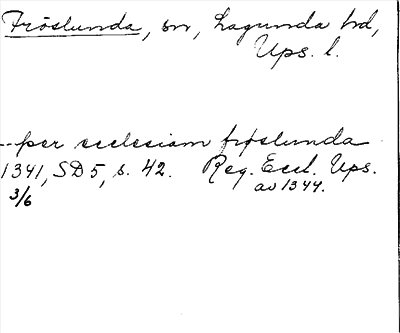 Fröslunda, sn, Lagunda hd,
Ups. l.
--per ecclesiam frøslunda
1341, SD 5, s. 42. Reg. Eccl. Ups.
3/6 av 1344.